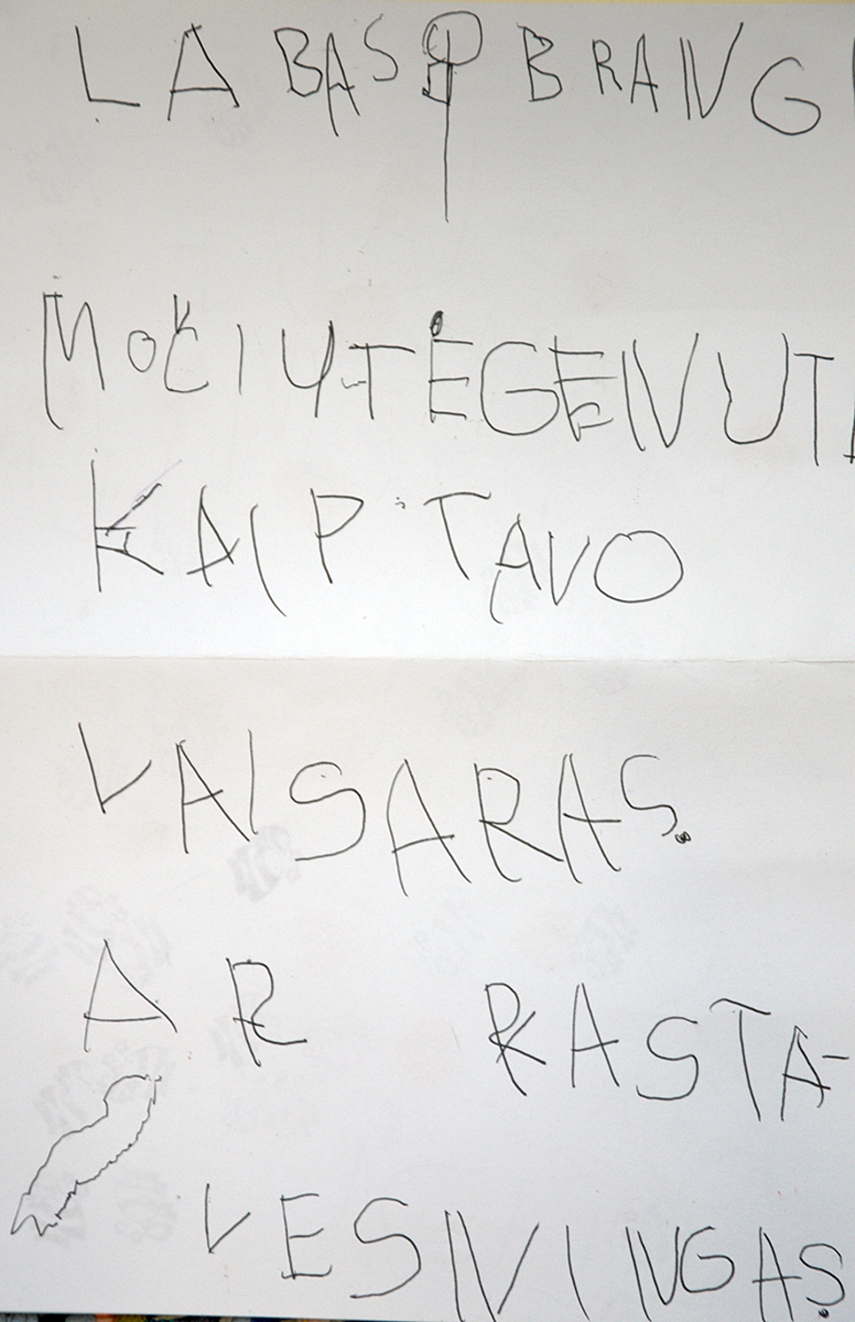 LABAS BRANGI
MOČIUTĖ GENUT
KAIP TAVO
VAISARAS.
AR RASTA-
VESNINGAS.